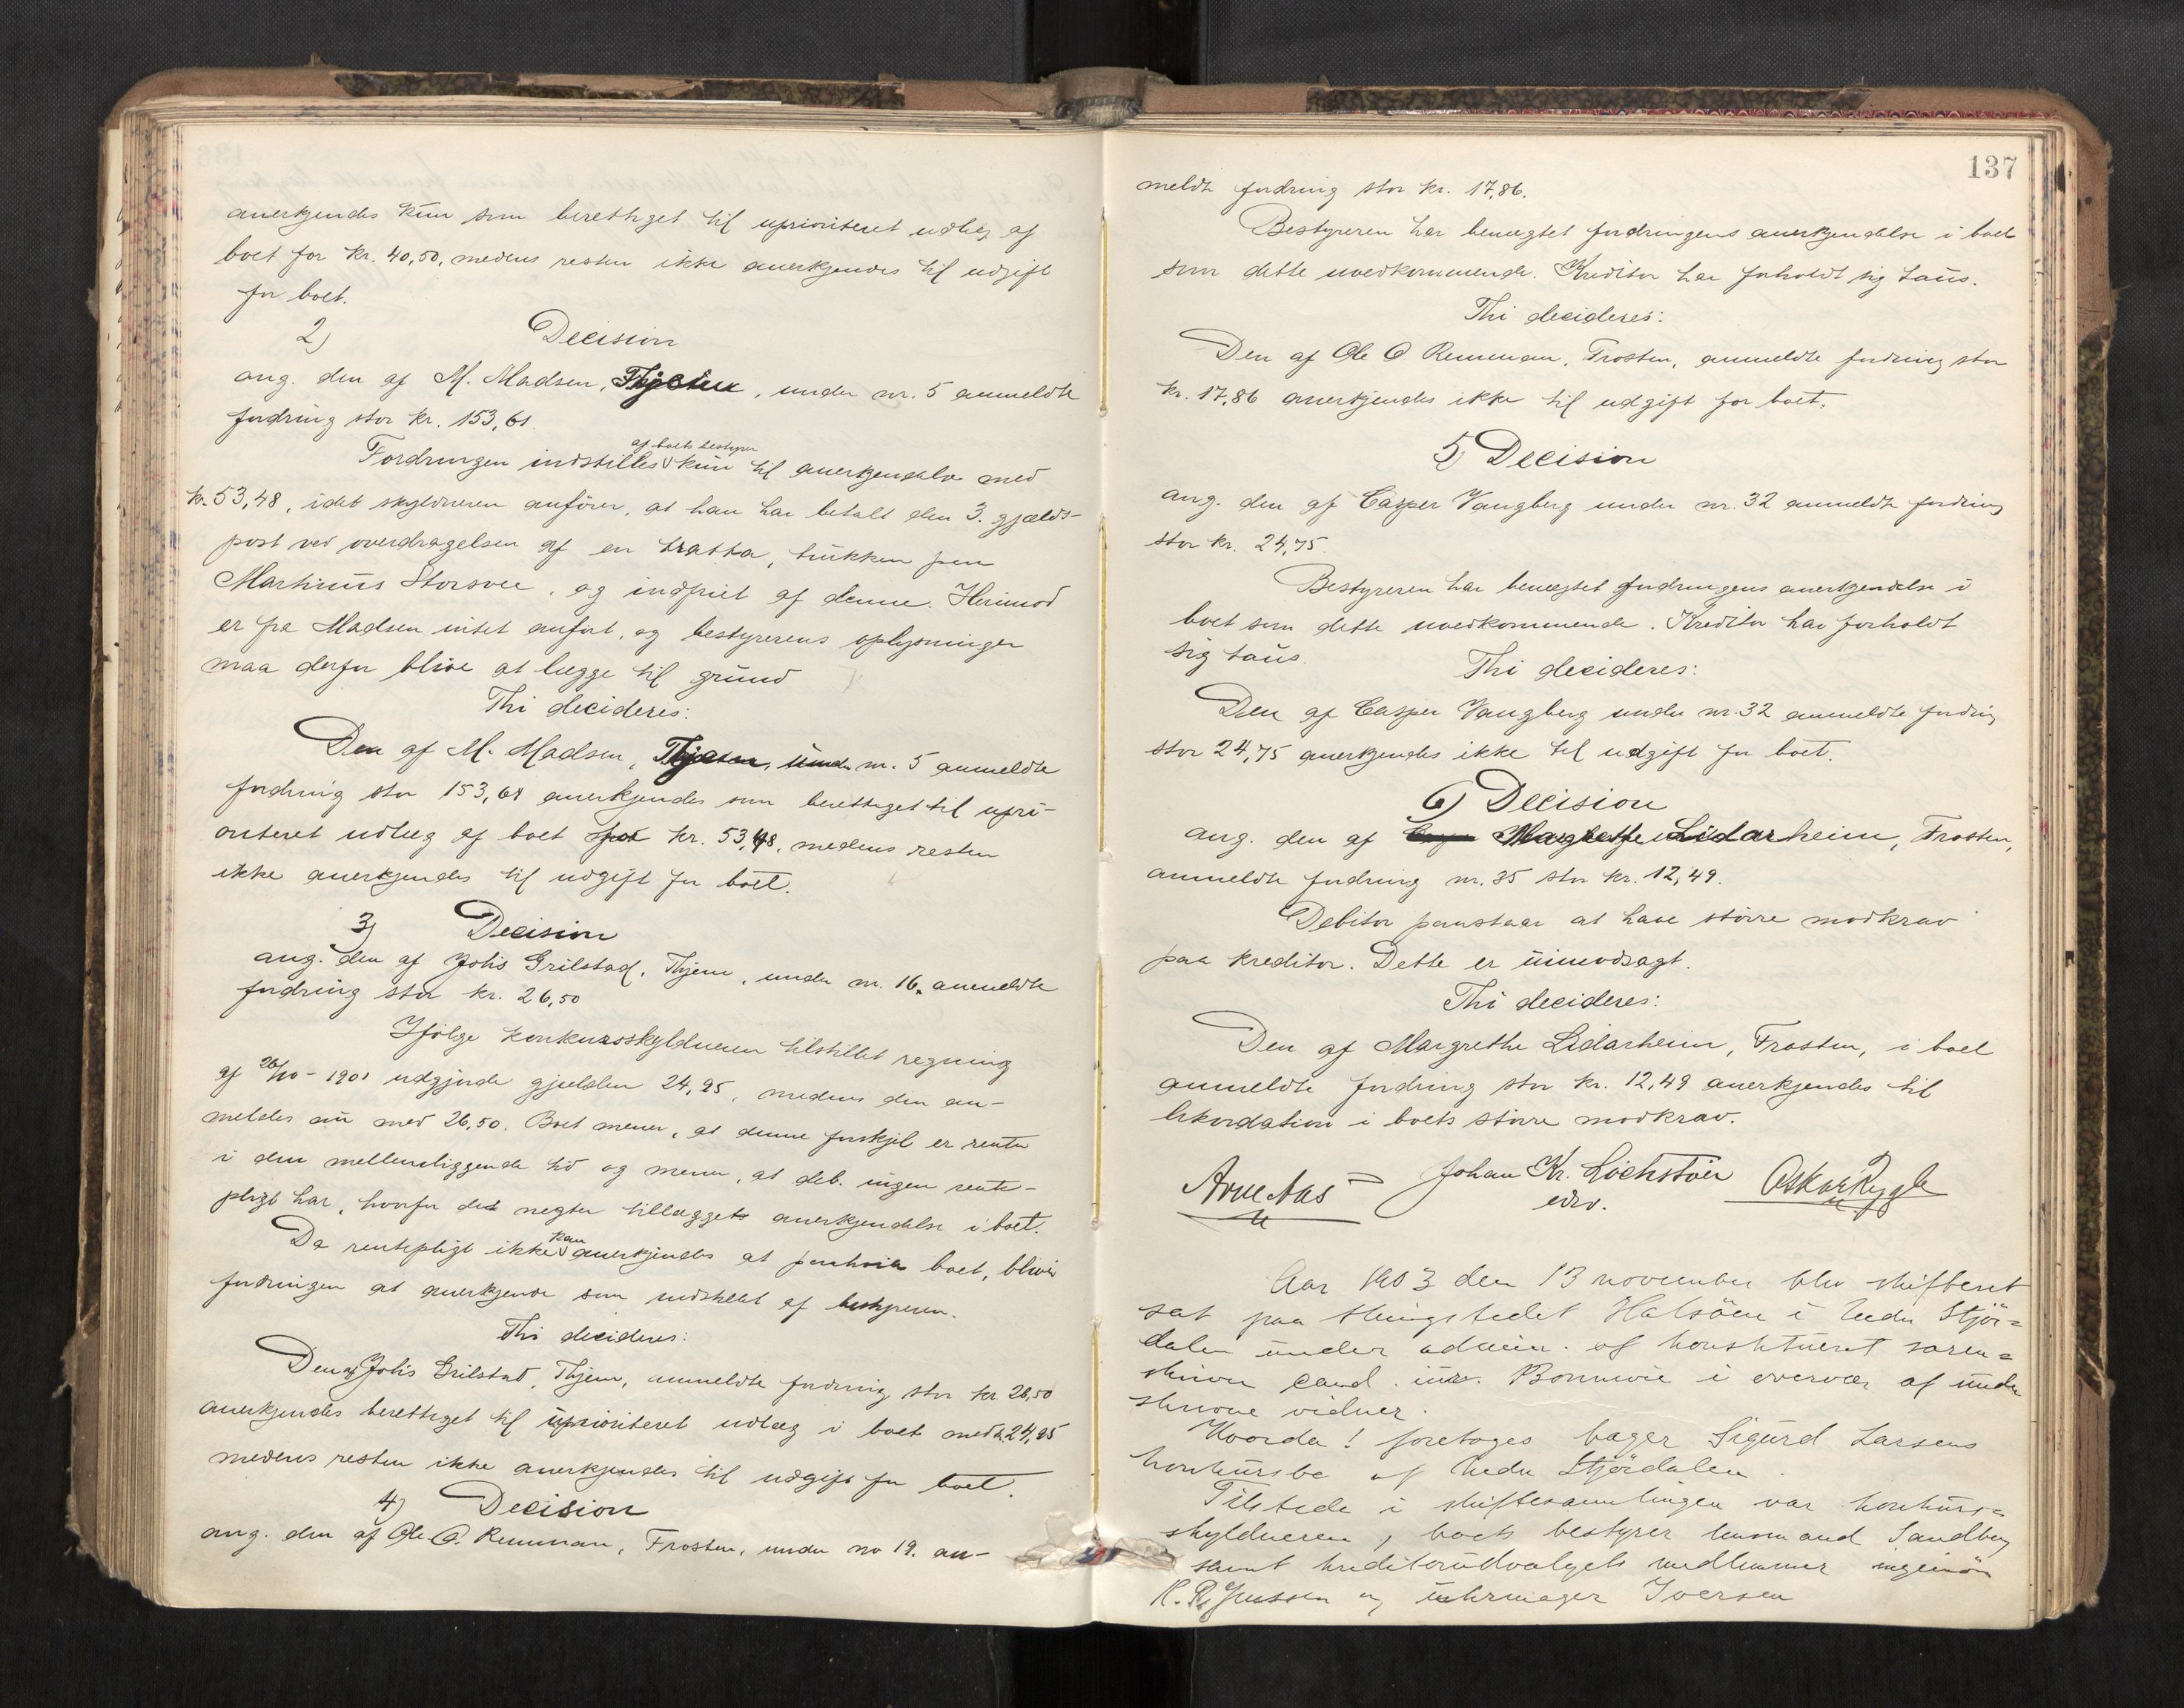 anerkjendes kun som berettiget til uprioriteret udlæg af
boet for kr. 40,50, medens resten ikke anerkjendes til udgift
for boet.
2) Decision
ang. den af M. Madsen, under nr. 5 anmeldte
fordring stor kr. 153,61.
Fordringen indstilles af boets bestyrer kun til anerkjendelse med
kr. 53,48, idet skyldneren anfører, at han har betalt den 3. gjælds-
post ved overdragelsen af en tratta, trukken paa
Martinus Storsve, og indfriet af denne. Herimod
er fra Madsen intet anført, og bestyrerens oplysninger
maa derfor blive at lægge til grund
Thi decideres:
Den af M. Madsen, under nr. 5 anmeldte
fordring stor 153,61 anerkjendes som berettiget til upri-
oriteret udlæg af boet for kr. 53,48, medens resten
ikke anerkjendes til udgift for boet.
3) Decision
ang. den af Johs Grilstad, Thjem, under nr. 16 anmeldte
fordring stor kr. 26,50
Ifølge konkursskyldneren tilstillet regning
af 26/10 - 1901 udgjorde gjælden 24,95, medens den an-
meldes nu med 26,50. Boet mener, at denne forskjel er renter
i den mellemliggende tid og mener, at deb. ingen rente-
pligt har, hvorfor det negter tillæggets anerkjendelse i boet.
Da rentepligt ikke kan anerkjendes at paahvile boet, bliver
fordringen at anerkjende som indstillet af bestyreren.
Thi decideres:
Den af Johs Grilstad, Thjem, anmeldte fordring stor kr 26,50
anerkjendes berettiget til uprioriteret udlæg i boet med kr. 24,95
medens resten ikke anerkjendes til udgift for boet.
4) Decision
ang. den af Ole O. Remman, Frosten, under no 19. an-
137
meldte fordring stor kr. 17,86.
Bestyreren har benegtet fordringens anerkjendelse i boet
som dette uvedkommende. Kreditor har forholdt sig taus.
Thi decideres:
Den af Ole O Remman, Frosten, anmeldte fordring stor
kr. 17,86 anerkjendes ikke til udgift for boet.
5) Decision
ang. den af Casper Vangberg under nr. 32 anmeldte fordring
stor kr. 24,75.
Bestyreren har benegtet fordringens anerkjendelse i
boet som dette uvedkommende. Kreditor har forholdt
sig taus.
Thi decideres:
Den af Casper Vangberg under nr. 32 anmeldte fordring
stor 24,75 anerkjendes ikke til udgift for boet.
6) Decision
ang. den af Margrethe Lidarheim, Frosten,
anmeldte fordring nr. 35 stor kr. 12,49.
Debitor paastaar at have større modkrav
paa kreditor. Dette er uimodsagt.
Thi decideres:
Den af Margrethe Lidarheim, Frosten, i boet
anmeldte fordring stor kr. 12,49 anerkjendes til
likvidation i boets større modkrav.
Arne Aas Johan Kr. Lochstöer Oskar Rygg
edsv.
Aar 1903 den 13 november blev skifteret
sat paa thingstedet Halsöen i Nedre Stjör=
dalen under admin. af konstitueret soren=
skriver cand. jur. Bonnevie i overvær af under
skrevne vidner.
Hvorda! foretoges bager Sigurd Larsens
konkursbo af Nedre Stjördalen.
Tilstede i skiftesamlingen var konkurs=
skyldneren, boets bestyrer lensmand Sandberg
samt kreditorudvalgets medlemmer ingeniör
og uhrmager Iversen